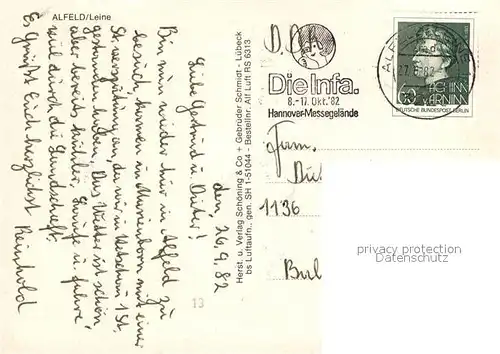 ALFELD/Leine
den 26.9.82
Liebe Gertrud u. Dieter!
Bin mal wieder hier in Alfeld zu
besuch, kamen in Marienborn mit einer
verspätung an, da wir in 1 St.
gestanden haben. Das Wetter ist schön
aber bereits kühler. Laufe u. fahre
viel durch die Landschaft.
Es Grüßt Euch herzlichst
Reinhold
Herst. u. Verlag Schöning & Co + Gebrüder Schmidt - Lübeck
bs Luftaufn., gen. SH 1-51044 - Bestellnr. Alf Luft RS 6313
13
Die Infa.
8.-17. Okt. '82
Hannover-Messegelände
60
BETTINA
VON ARNIM
DEUTSCHE BUNDESPOST BERLIN
1136
privacy protection
Datenschutz